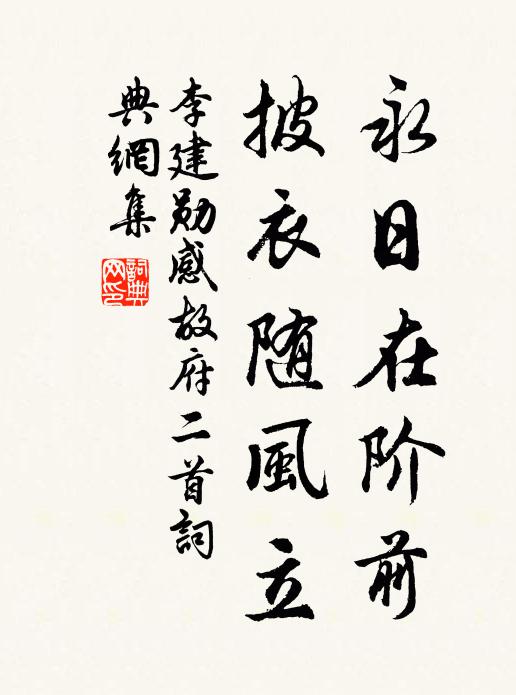 永日在阶前
披衣随風立
李建勋感故府二首詞
典網集
詞典
网印